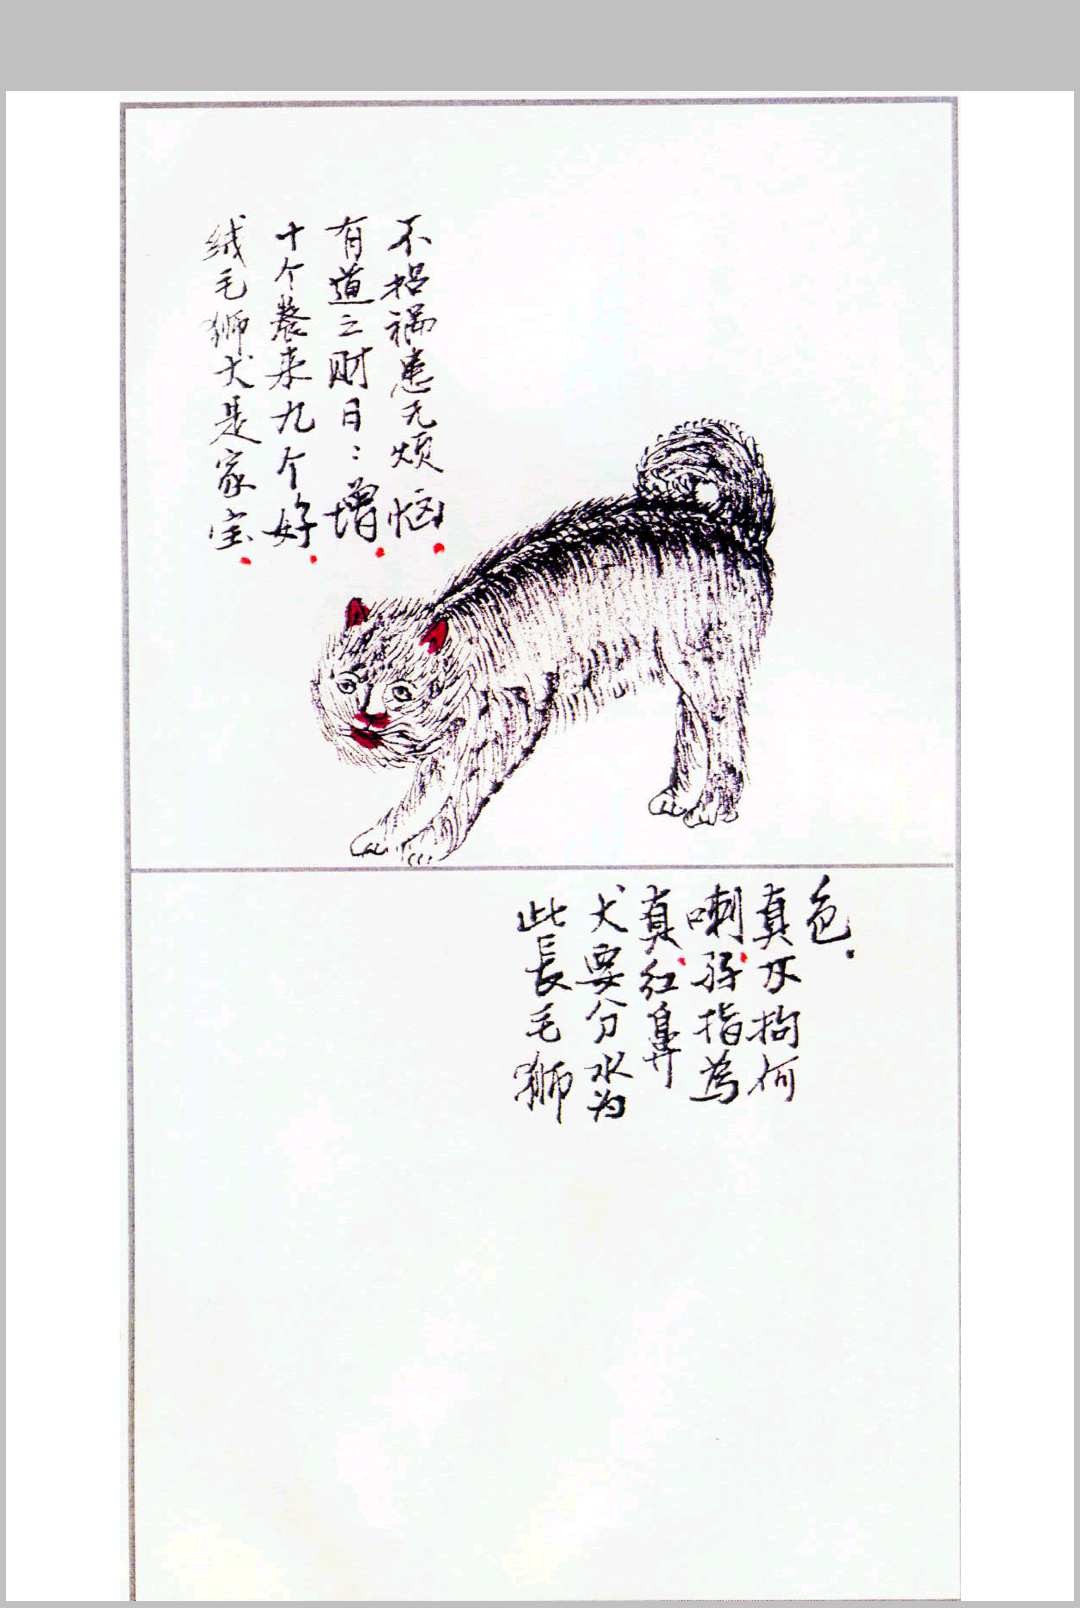 绒毛狮犬是家宝
十个養来九个好
有道之财日：增
不招禍患无烦恼
此長毛狮
犬要分水为
真.红鼻
喇.孖指為
真不拘何
色.